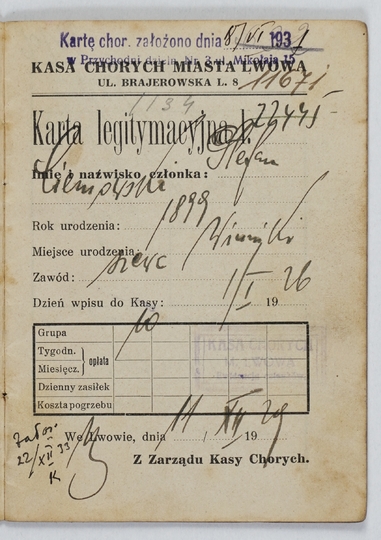 Kartę chor. założono dnia 8/VI 1932
w Przychodni dzieln. Nr. 3 ul. Mikołaja 15
KASA CHORYCH MIASTA LWOWA
UL. BRAJEROWSKA L. 8
11671
1134
Karta legitymacyjna l. 22475
Stefan
Imię i nazwisko członka:
Rok urodzenia: 1899
Miejsce urodzenia: Winniki
Zawód: szewc
Dzień wpisu do Kasy: 1/I 1926
Grupa 10
Tygodn.
Miesięcz.
opłata
Dzienny zasiłek
Koszta pogrzebu
KASA CHORYCH
M. LWOWA
We Lwowie, dnia 11/XII 1929
Z Zarządu Kasy Chorych.
22/XII 33